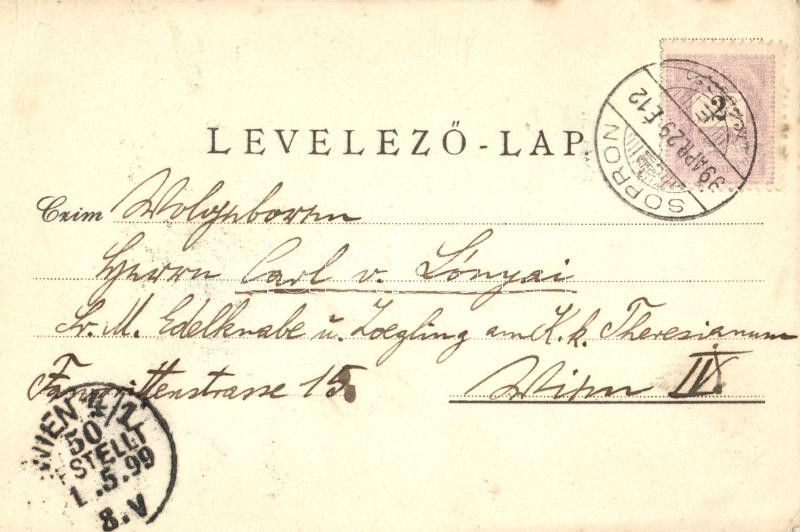 2
SOPRON
99 APR. 29. E. 12
LEVELEZŐ-LAP
Czim Wolgeboren
Herrn Carl v. Lónyai
Sr. M. Edelknabe u. Zoegling am K. k. Theresianum
Favorittenstrasse 15. Wien IV.
WIEN 4/1
50
BESTELLT
1.5.99
8.V